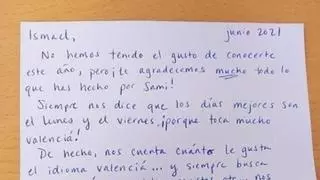 Ismael,
junio 2021
No hemos tenido el gusto de conocerte
este año, pero ¡te agradecemos mucho todo lo
que has hecho por Sami!
Siempre nos dice que los días mejores son
el lunes y el viernes, ¡porque toca mucho
valencià!
De hecho, nos cuenta cuánto le gusta
el idioma valencià... y siempre busca